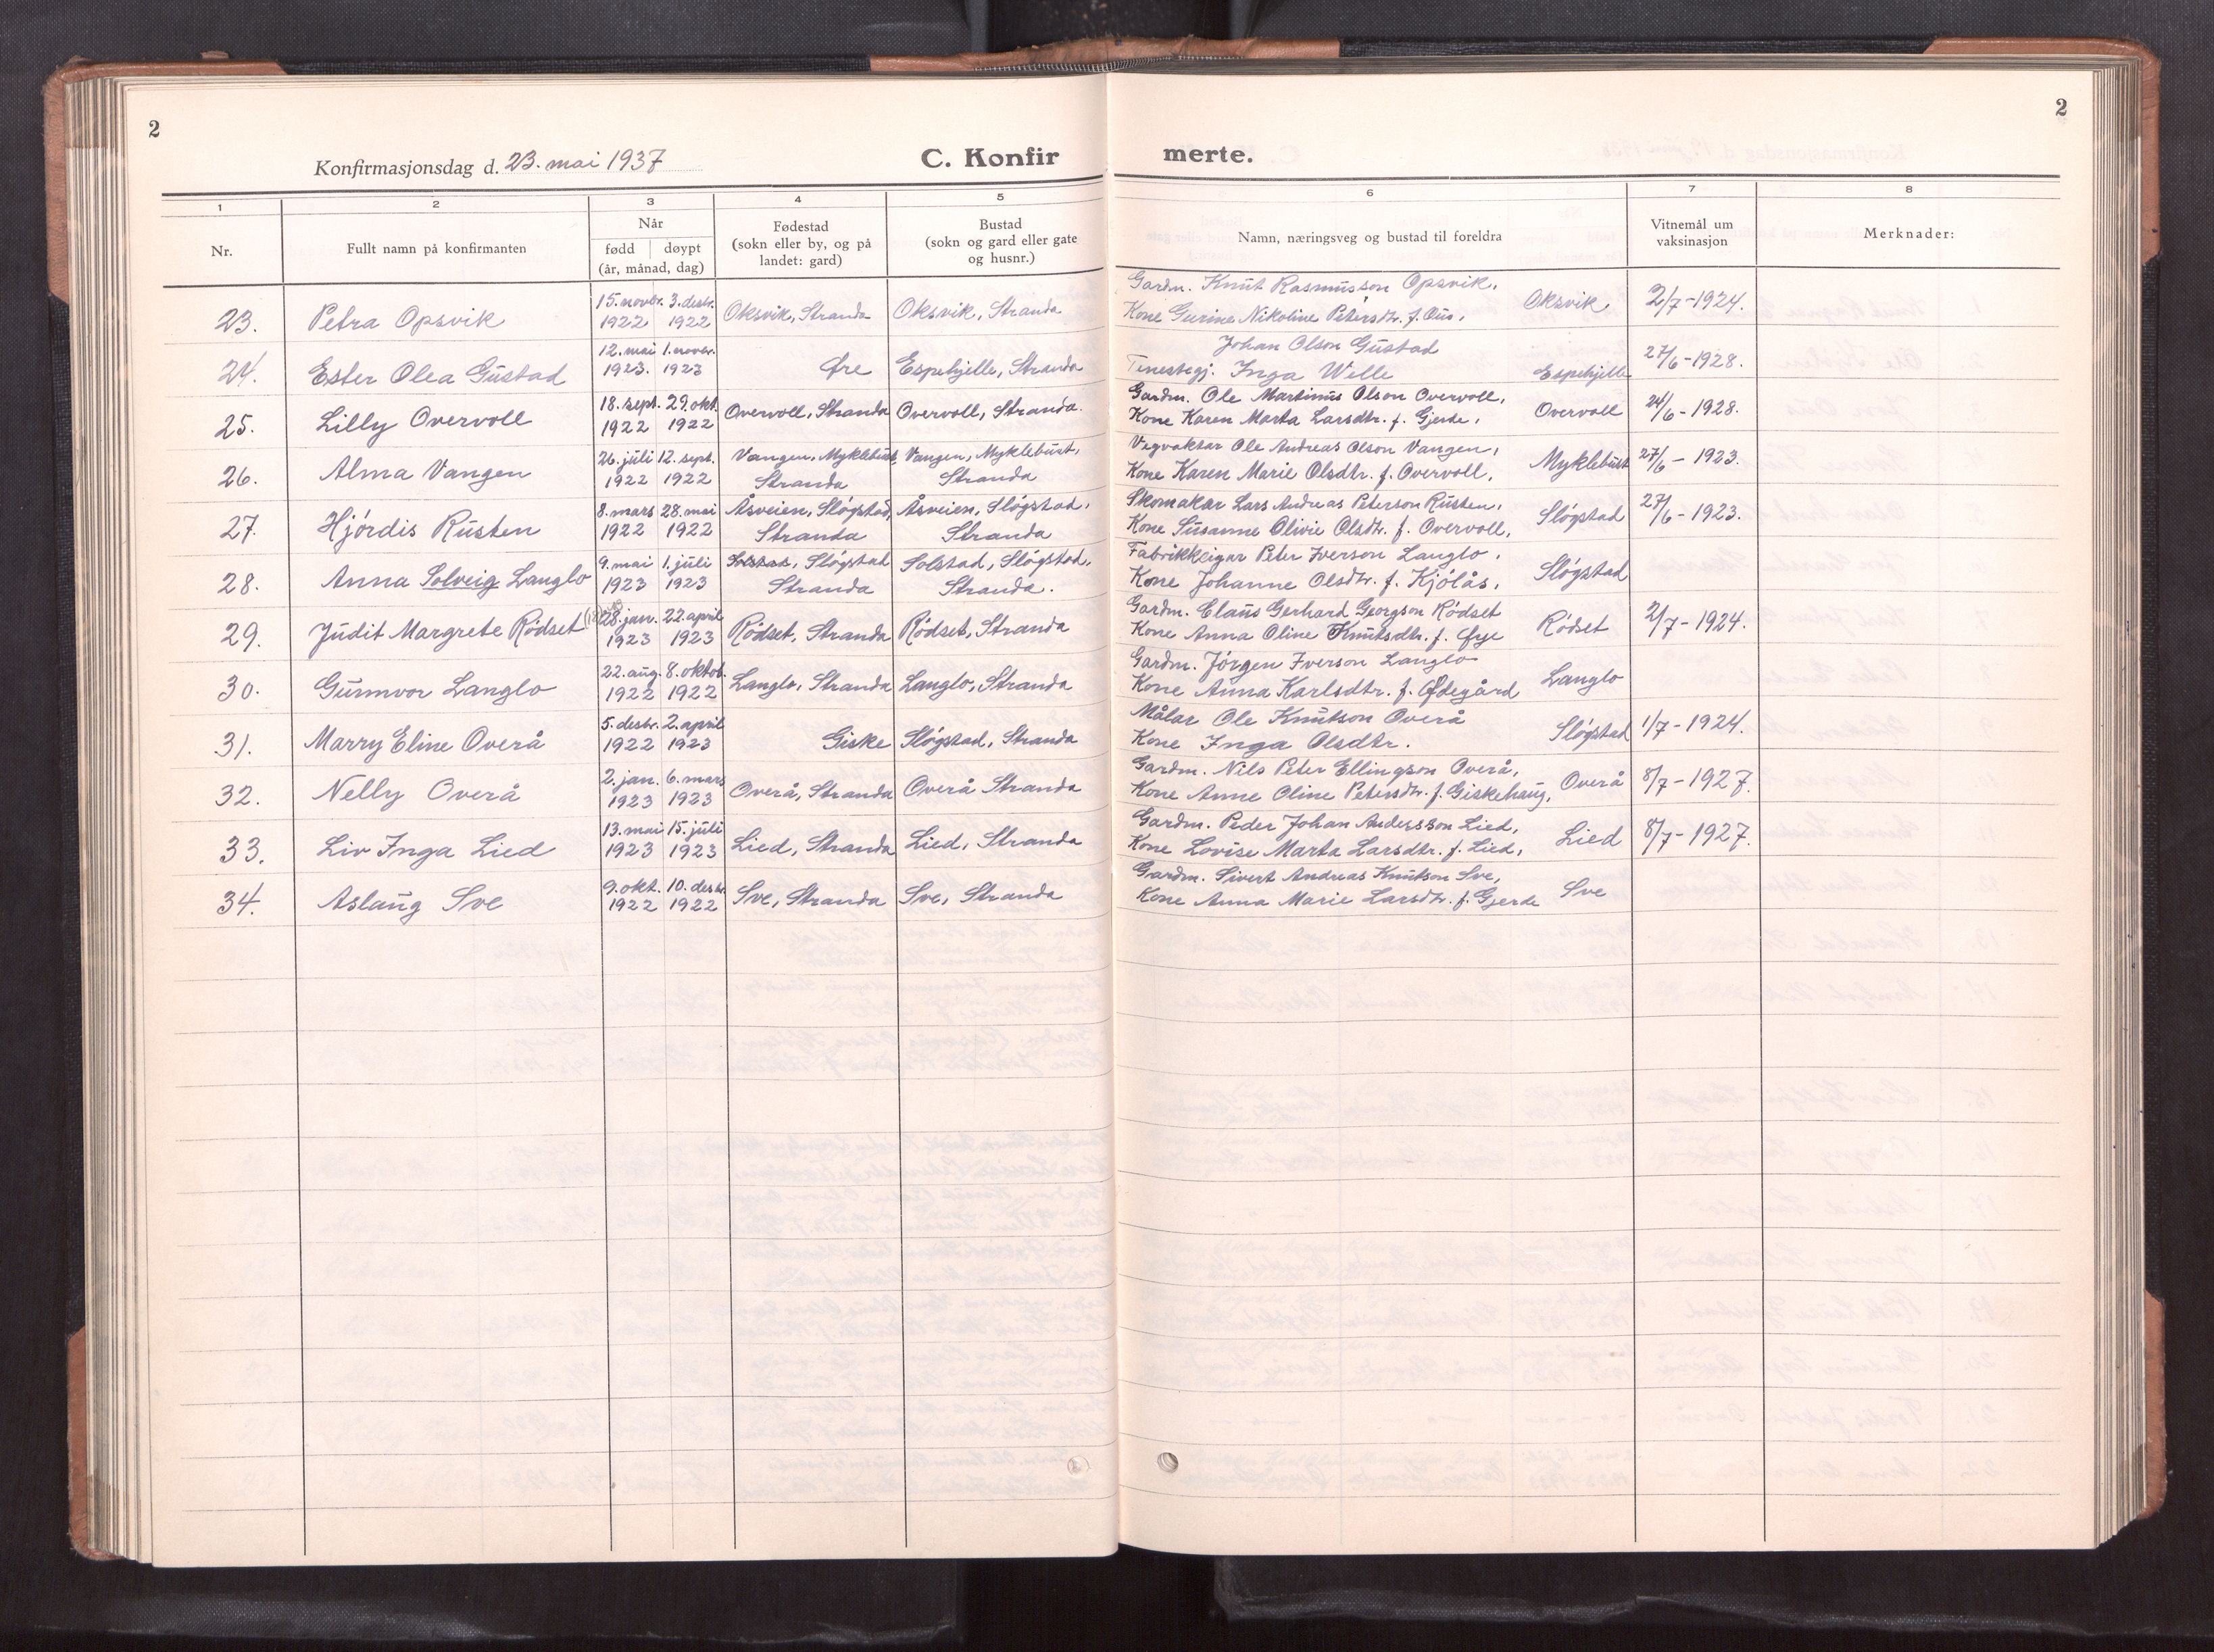 2
Konfirmasjonsdag d. 23. mai 1937
C. Konfirmerte.
2
1 2 3 4 5 6 7 8
Nr. Fullt namn på konfirmanten Når fødd døypt (år, månad, dag) Fødestad (sokn eller by, og på landet: gard) Bustad (sokn og gard eller gate og husnr.) Namn, næringsveg og bustad til foreldra Vitnemål um vaksinasjon Merknader:
23. Petra Opsvik 15. novbr. 1922 3. desbr. 1922 Oksvik, Stranda Oksvik, Stranda Gardm. Knut Rasmusson Opsvik, Kone Gurine Nikoline Petersdtr. f. Øus, Oksvik 2/7-1924.
24. Ester Olea Gustad 12. mai 1923. 1. novbr. 1923 Øre Espehjelle, Stranda Johan Olson Gustad Tenestegj. Inga Welle Espehjelle 27/6-1928.
25. Lilly Overvoll 18. sept. 1922 29. okt. 1922 Overvoll, Stranda Overvoll, Stranda. Gardm. Ole Martinus Olson Overvoll, Kone Karen Marta Larsdtr. f. Gjerde, Overvoll 24/6-1928.
26. Alma Vangen 26. juli 1922 12. sept. 1922 Vangen, Myklebust, Stranda Vangen, Myklebust, Stranda Vegvaktar Ole Andreas Olson Vangen, Kone Karen Marie Olsdtr. f. Overvoll, Myklebust 27/6-1923.
27. Hjórdis Rusten 8. mars 1922 28. mai 1922 Åsveien, Slógstad, Stranda Åsveien, Slógstad, Stranda Skomakar Lars Andreas Peterson Rusten, Kone Susanne Olivie Olsdtr. f. Overvoll, Slógstad 27/6-1923.
28. Anna Solveig Langlo 9. mai 1923 1. juli 1923 Solstad, Slógstad Stranda Solstad, Slógstad, Stranda. Fabrikkeigar Peter Iverson Langlo, Kone Johanne Olsdtr. f. Kjólås, Slógstad
29. Judit Margrete Ródset 28. jan. 1923 22. april 1923 Ródset, Stranda Ródset, Stranda Gardm. Claus Gerhard Georgson Ródset Kone Anna Oline Knutsdtr. f. Øye Ródset 2/7-1924.
30. Gunnvor Langlo 22. aug. 1922 8. oktob. 1922 Langlo, Stranda Langlo, Stranda Gardm. Jórgen Iverson Langlo Kone Anna Karlsdtr. f. Ødegård Langlo
31. Marry Eline Overå 5. desbr. 1922 2. april 1923 Giske Slógstad, Stranda Målar Ole Knutson Overå Kone Inga Olsdtr. Slógstad 1/7-1924.
32. Nelly Overå 2. jan. 1923 6. mars 1923 Overå, Stranda Overå Stranda Gardm. Nils Peter Ellingson Overå, Kone Anne Oline Petersdtr. f. Giskehaug, Overå 8/7-1927.
33. Liv Inga Lied 13. mai 1923 15. juli 1923 Lied, Stranda Lied, Stranda Gardm. Peder Johan Andersson Lied, Kone Lovise Marta Larsdtr. f. Lied, Lied 8/7-1927.
34. Aslaug Sve 9. okt. 1922 10. desbr. 1922 Sve, Stranda Sve, Stranda Gardm. Sivert Andreas Knutson Sve, Kone Anna Marie Larsdtr. f. Gjerde Sve